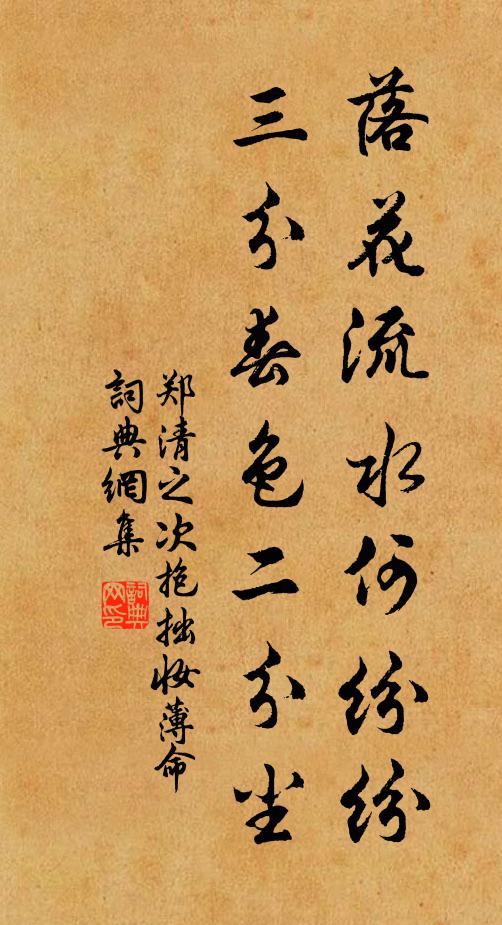 落花流水何纷纷
三分春色二分尘
郑清之次抱拙妝薄命
詞典網集
詞典网印